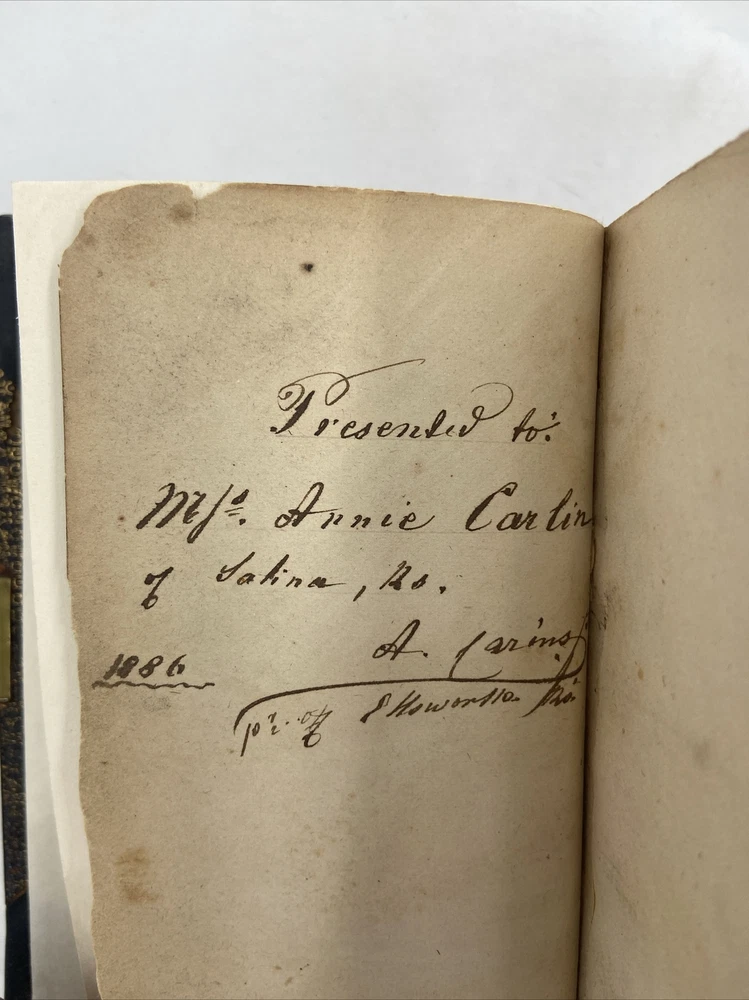 Presented to:
Mrs. Annie Carlin
of Salina, Ks.
1886
A. Carins
pr. of Ellsworth Ks.